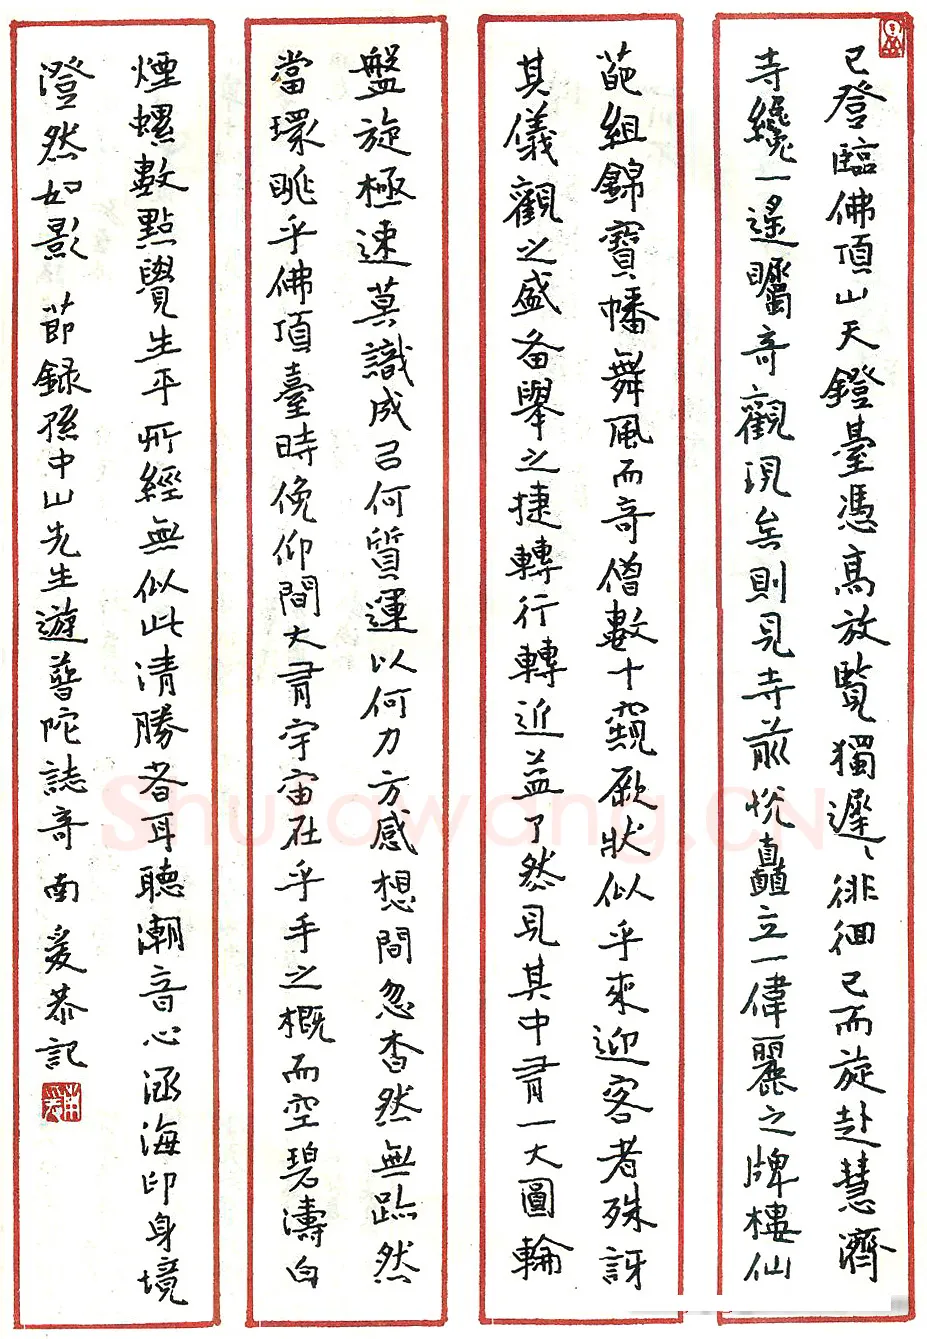 已登臨佛頂山天鐙臺憑高放覽獨遲遲徘徊已而旋赴慧濟
寺纔一遙矚奇觀現矣則見寺前恍矗立一偉麗之牌樓仙
葩組錦寶幡舞風而奇僧數十窺厥狀似乎來迎客者殊訝
其儀觀之盛备舉之捷轉行轉近益了然見其中有一大圓輪
盤旋極速莫識成以何質運以何力方感想間忽杳然無跡然
當環眺乎佛頂臺時俛仰間大有宇宙在乎手之概而空碧濤白
煙螺數點覺生平所經無似此清勝者耳聽潮音心涵海印身境
澄然如影 節録孫中山先生遊普陀誌奇 南爰恭記
Shufawang.CN